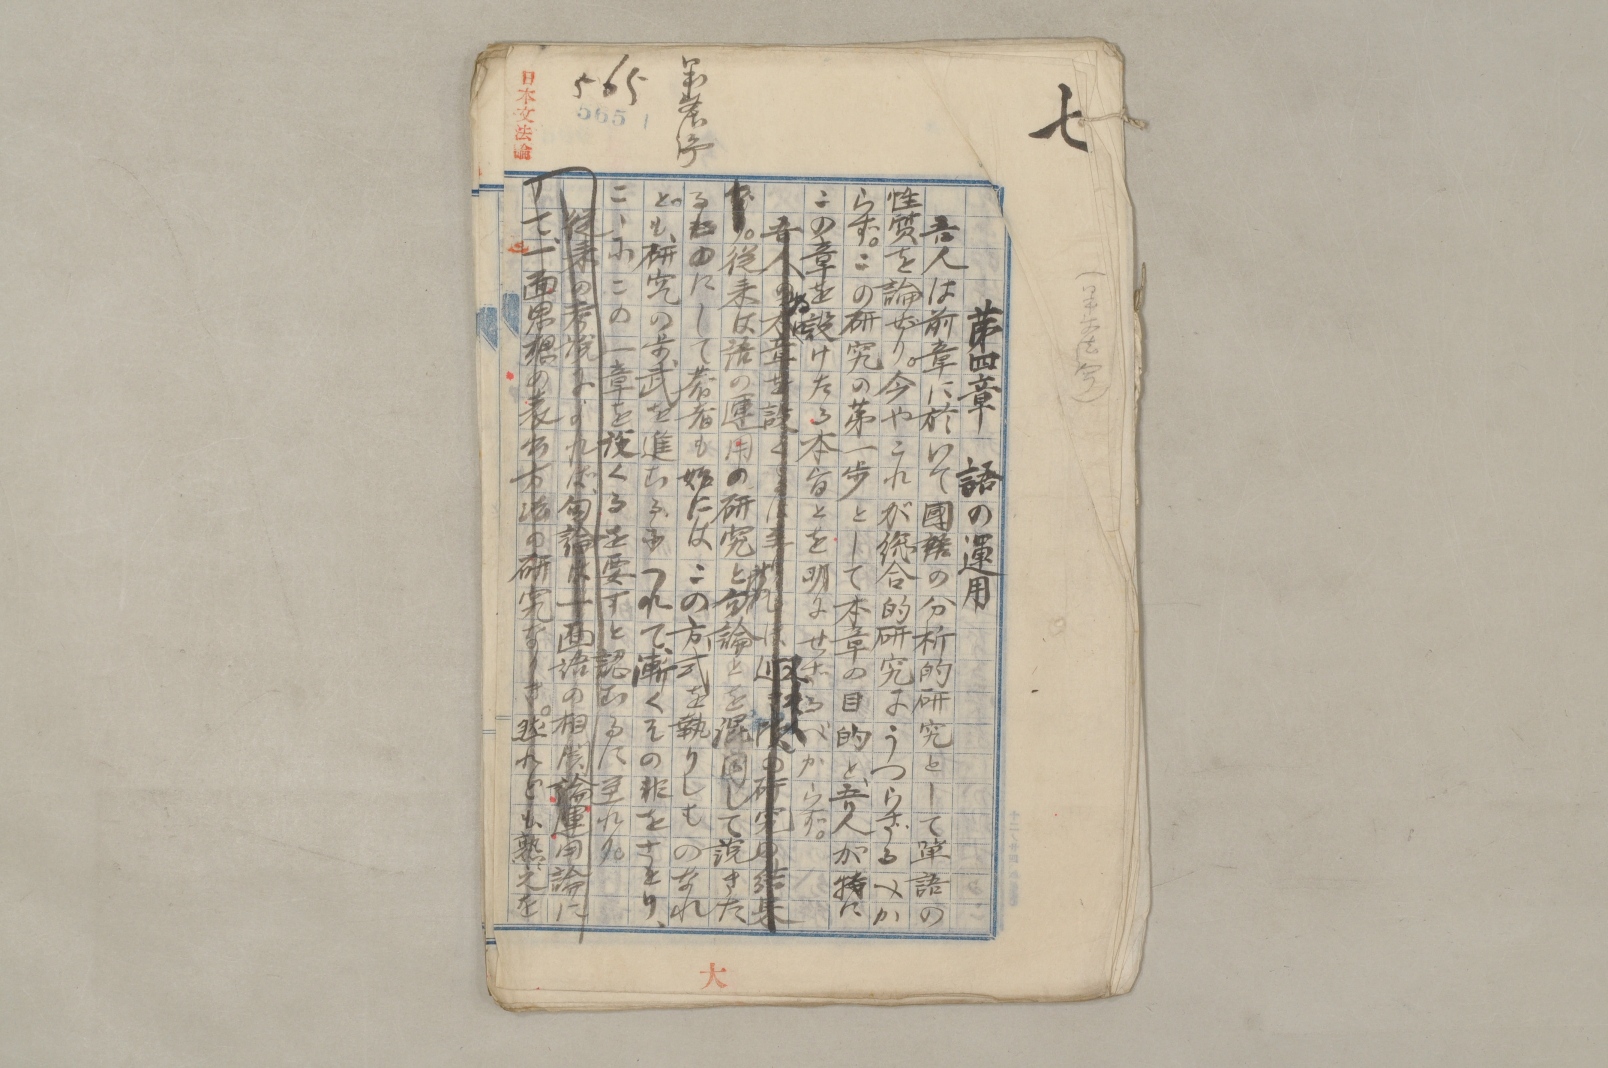 七
第四章 語の運用
吾人は前章に於いて國語の分析的研究として單語の
性質を論ぜり。今やこれが綜合的研究にうつらざるべか
らず。この研究の第一歩として本章の目的と、吾人が特に
この章を設けたる本旨とを明にせざるべからず。
吾人の本章を設くるは の研究の結果
。從来は語の運用の研究と句論とを混同して説きた
るものにして著者も始には、この方式を執りしものなれ
ども、研究の歩武を進むるにつれて、漸くその非をさとり、
ここにこの一章を設くるを要すと認むるに至れり。
從来の考説によれば、句論は一面語の相関論運用論に
して、一面思想の表出方法の研究なりき。然れども熟之を
565
565
日本文法論
大